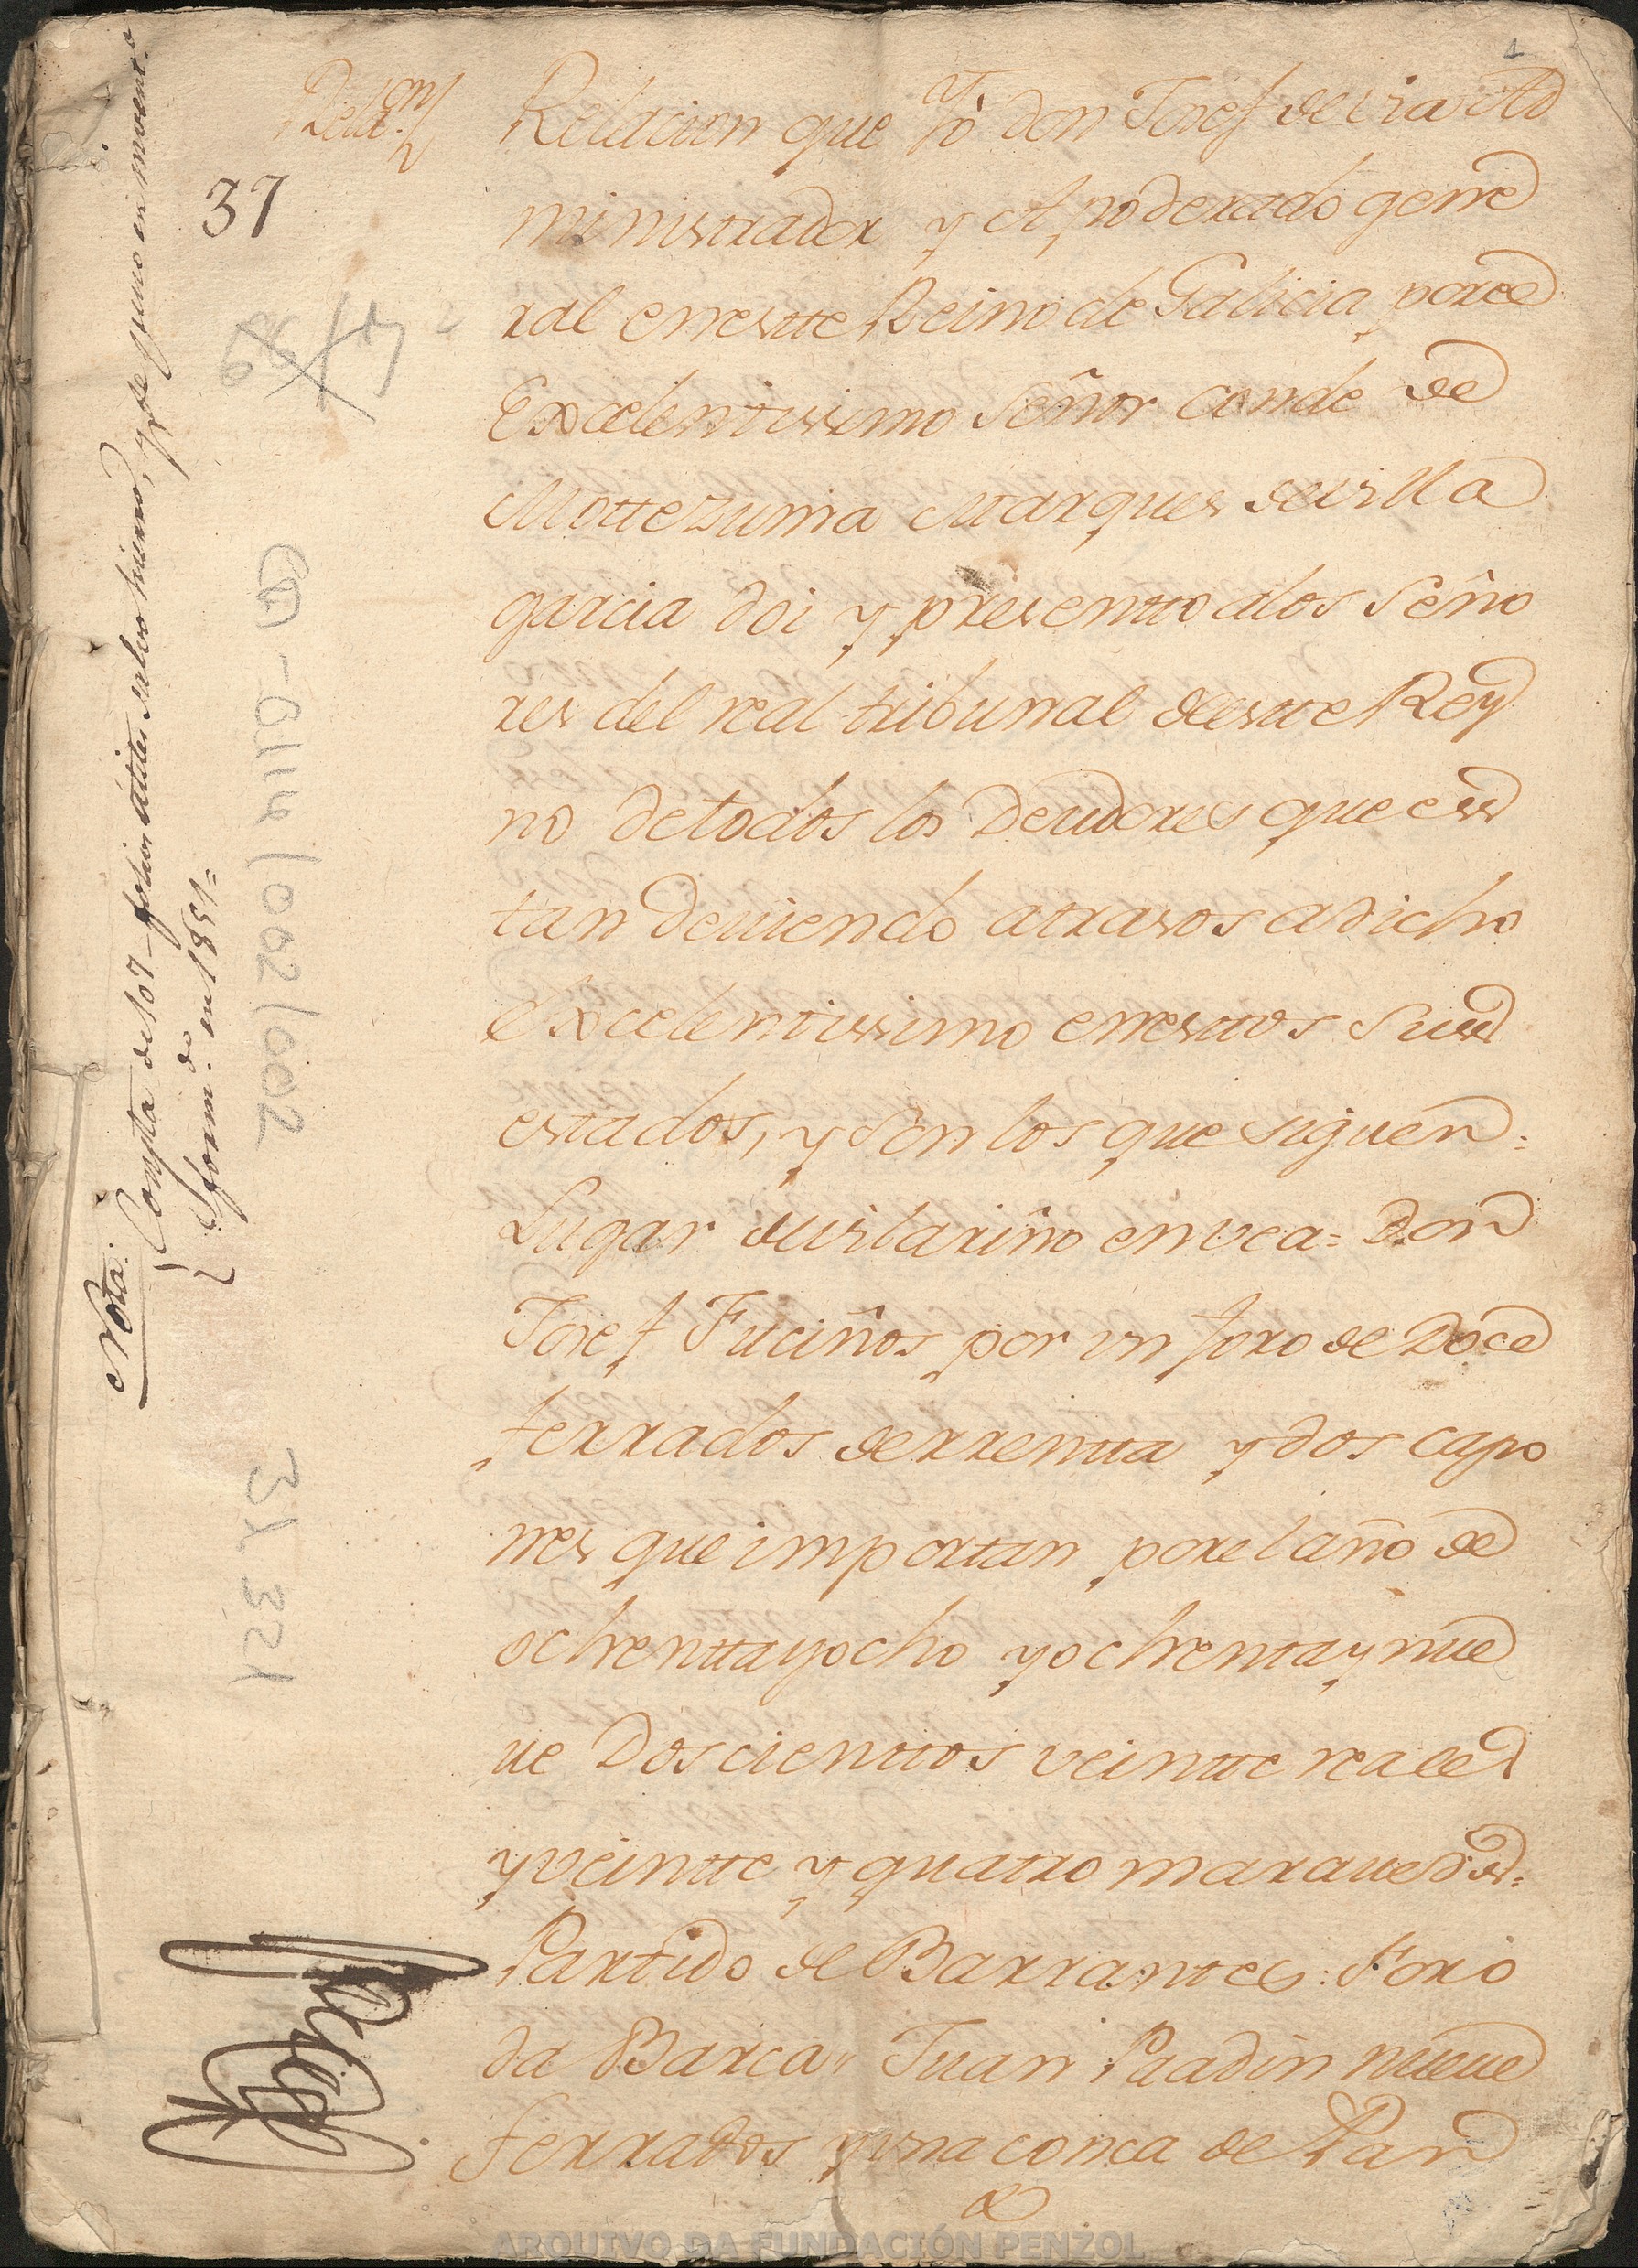 1
Relaçon
Relacion que Yo don Josef de Uia Ad
ministrador y Apoderado gene
ral enestte Reino de Galicia por el
Excelentissimo Señor Conde de
Mottezuma Marques de Villa
garcia doi y pressentto a los Seño
res del real tribunal de estte Rey
no de todos los Deudores que es
tan deuiendo atrasos a dicho
Excelentissimo enesttos sus
estados, y son los que siguen:
Lugar de Vilariño en uea= Don
Josef Fuciños por vn foro de Doce
ferrados de rrentta y dos capo
nes que importan por el año de
ochenttayocho yochentaynue
ue Doscienttos veintte reales
yveintte y quatro marauedis=
Partido de Barrantes: Foro
da Barca= Juan Paadin nueue
ferrados y vna conca de Pan
37
Nota:
Compta de 107 folios utiles salvo hierro, y se puso en invent.º
form.do en 1851=
C-0114/002/002
31.321
ARQUIVO DA FUNDACIÓN PENZOL